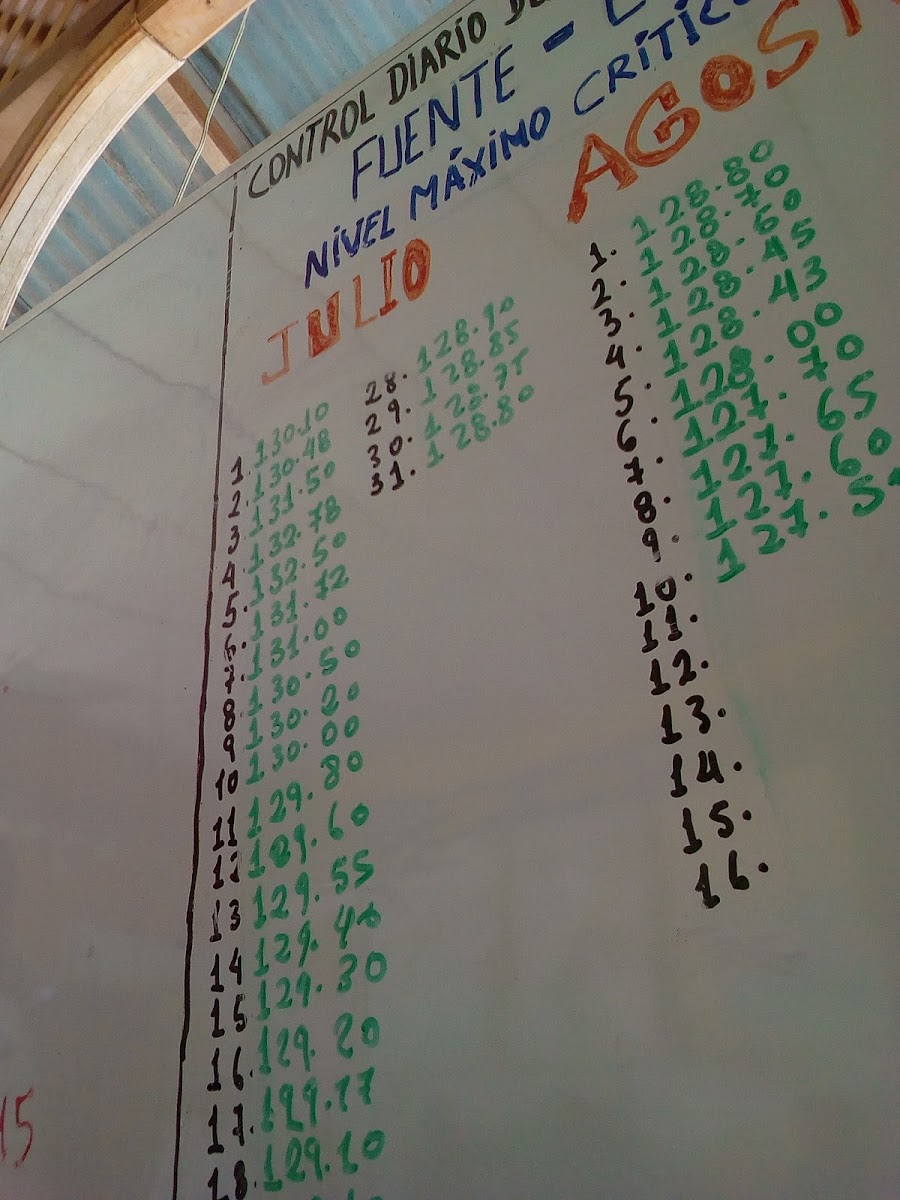 CONTROL DIARIO
FUENTE -
NIVEL MÁXIMO CRÍTICO
JULIO
1. 130.10
2. 130.48
3 131.50
4. 132.78
5. 132.50
6. 131.72
7. 131.00
8 130.50
9 130.20
10 130.00
11 129.80
12 129.60
13 129.55
14 129.40
15 129.30
16. 129.20
17. 129.17
18. 129.10
28. 128.90
29. 128.85
30. 128.75
31. 128.80
AGOST
1. 128.80
2. 128.70
3. 128.60
4. 128.45
5. 128.43
6. 128.00
7. 127.70
8. 127.65
9. 127.60
10. 127.5
11.
12.
13.
14.
15.
16.
15